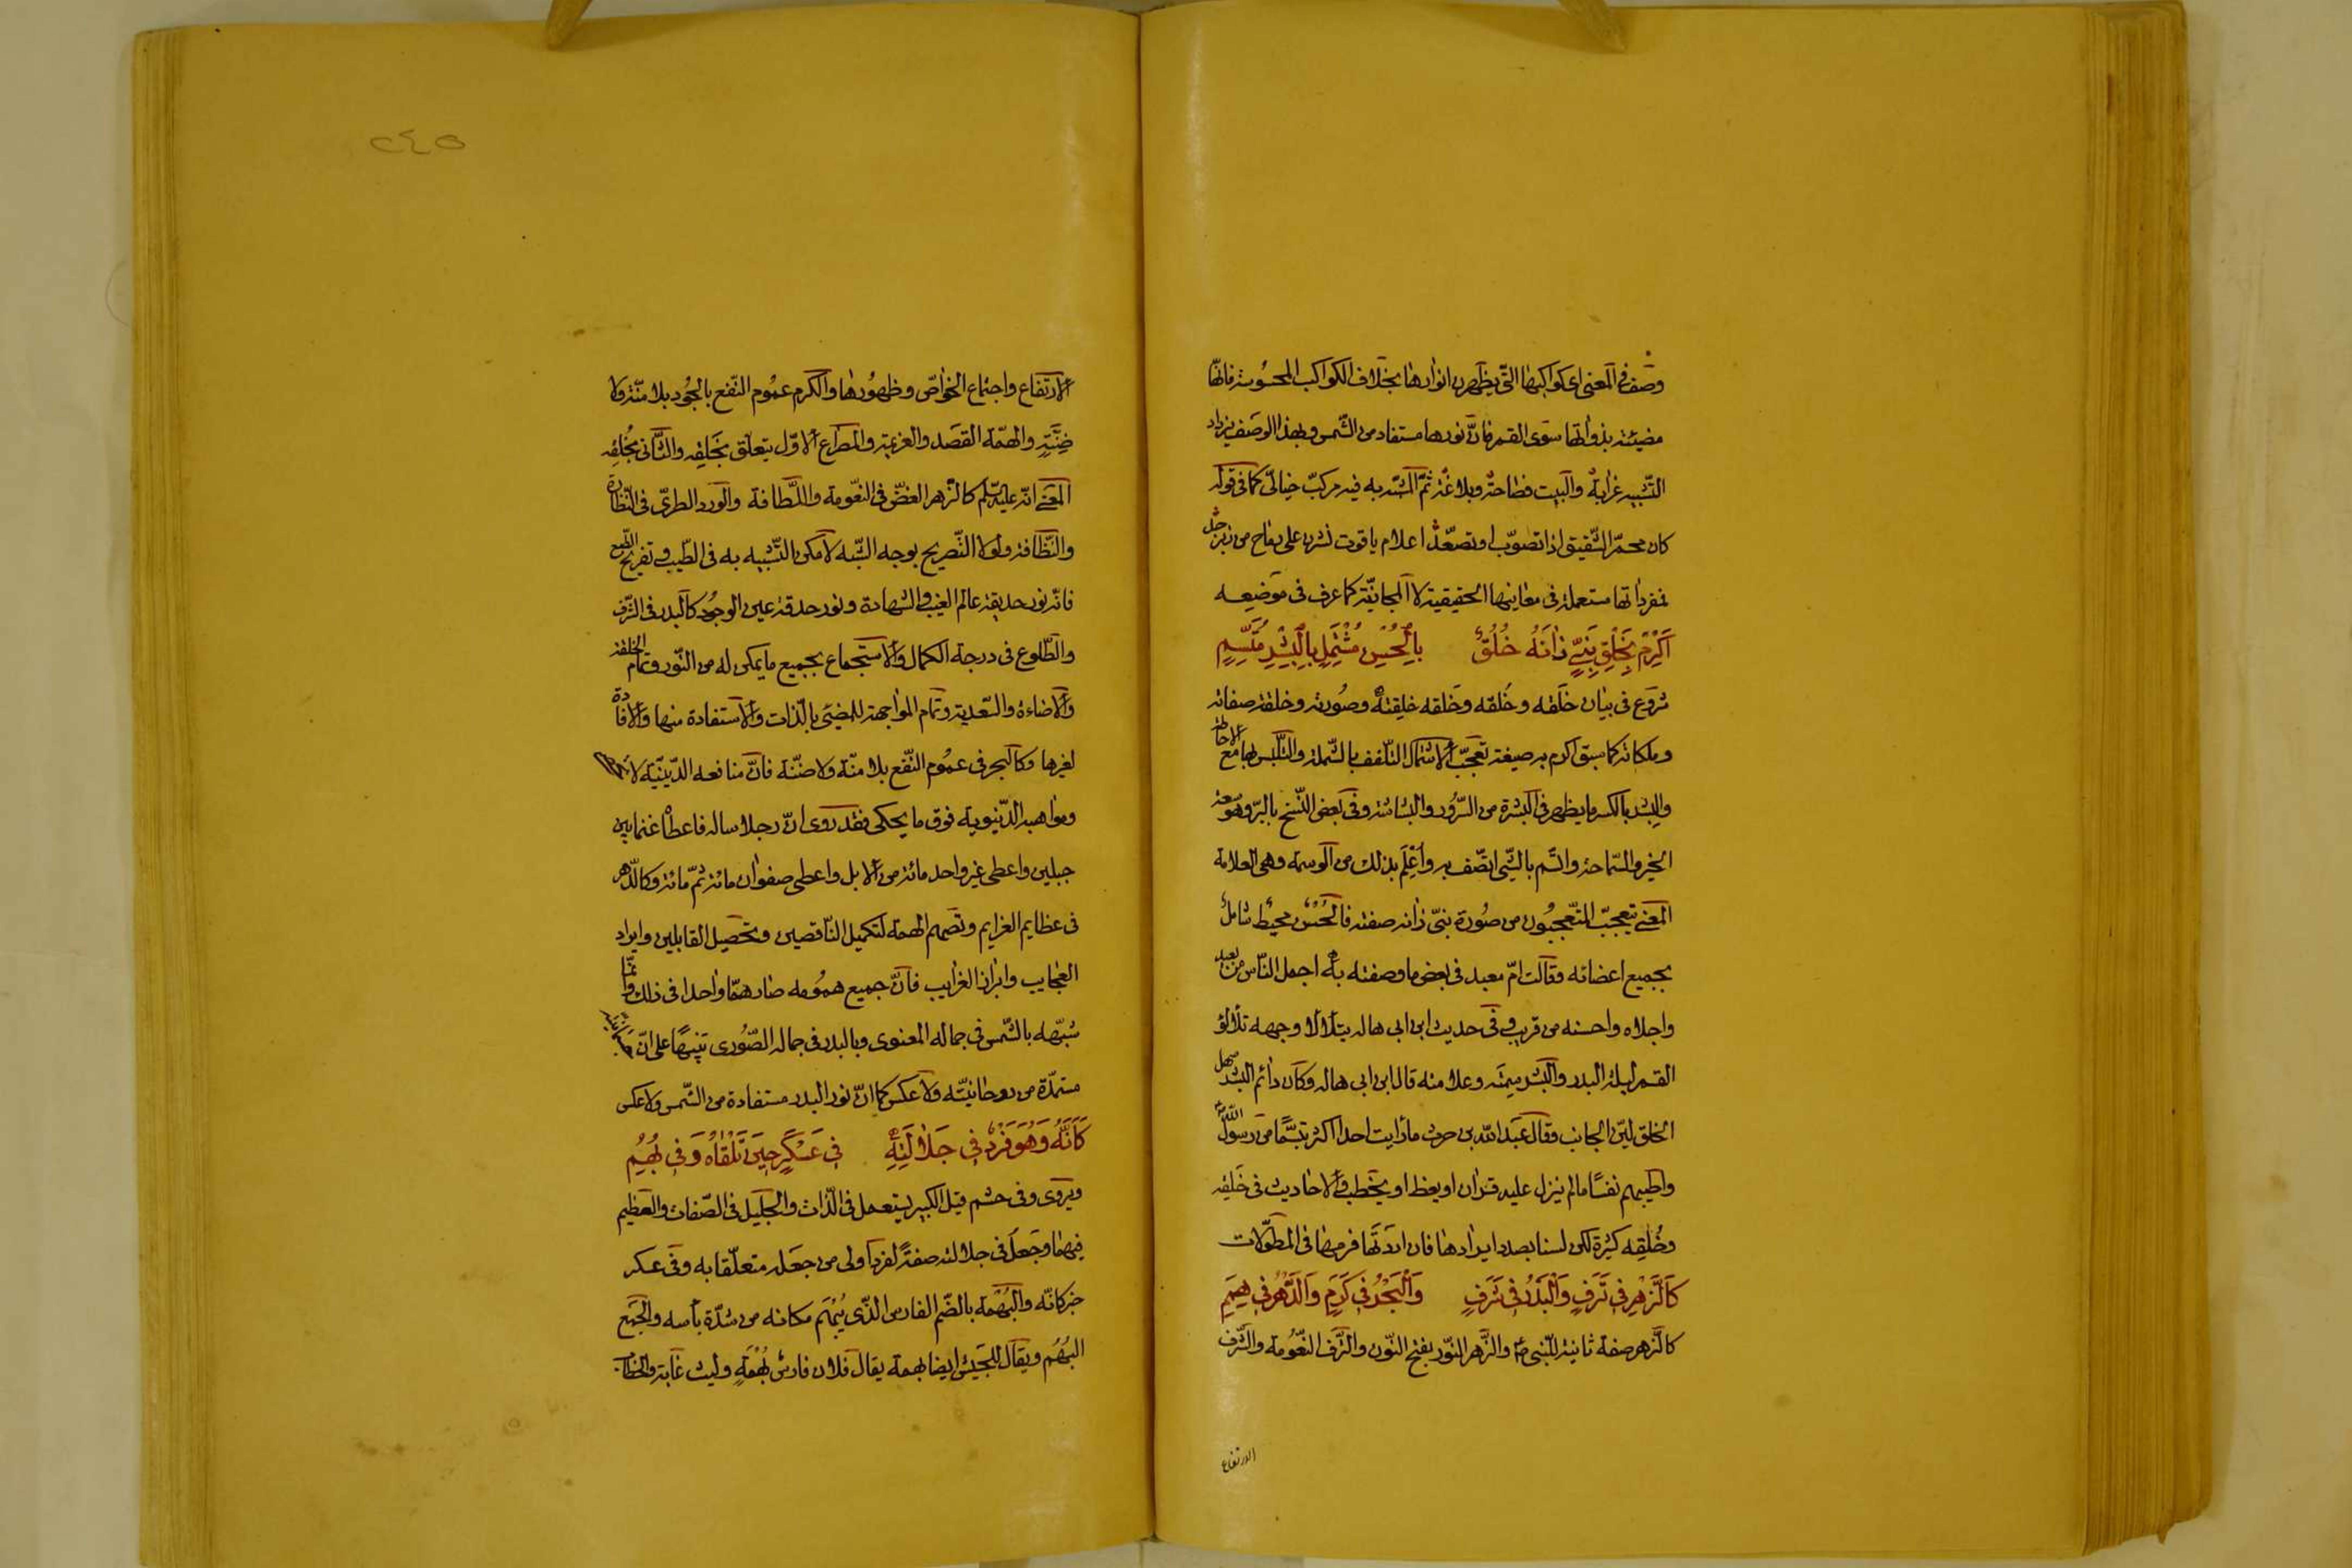 وصف فى المعنى اى كواكبها التى يظهرن انوارها بخلاف الكواكب المحسوسة فانها
مضيئة بذواتها سوى القمر فانّ نورها مستفاد من الشمس وبهذا الوصف يزداد
التشبيه غرابة والبيت فصاحة وبلاغة ثمّ المشبّه به فيه مركبّ خيالىّ كما فى قوله
كان محمرّ الشقيق اذا تصوّب او تصعّد اعلام ياقوت نشرن على رماح من زبرجد
لمفرداتها مستعملة فى معانيها الحقيقية لا المجازيّة كما عرف فى موضعه
اَكْرِمْ بِخَلْقِ نَبِىٍّ زٰانَهُ خُلُقٌ بِالْحُسْنِ مُشْتَمِلٍ بِالْبِشْرِ مُتَّسِمِ
شروع فى بيان خَلقه وخُلقه وخَلقه خليقته وصورته وخلقه صفاته
وملكاته كما سبق اكرم به صيغة تعجبّ الاشتمال التلفف بالشملة والتلبّس بها مع الاحاطة
والبشر بالكسر ما يظهر فى البشرة من السرّور والبشاشة وفى بعض النسخ بالبرّ وهو سعة
الخير والسّماحة واتّسم بالشئ اتصّف به واُعْلِمَ بذلك من الوسمة وهى العلامة
المعنى تعجبّ المتعجبّون من صورة نبىّ زانه صفته فالحُسْن محيط شامل
بجميع اعضائه فقالت امّ معبد فى بعض ما وصفته به اجمل النّاس من بعيد
واجلاه واحسنه من قريب وفى حديث ابن ابى هاله يتلألأ وجهه تلألؤ
القمر ليلة البدر والبشر سِمته وعلامته قال ابن ابى هاله وكان دائم البشر سهل
الخلق ليّن الجانب وقال عبد الله بن حرث ما رايت احدا اكثر تبسّما من رسول الله
واطيبهم نفسًا ما لم ينزل عليه قرآن او يعظ او يخطب والاحاديث فى خَلقِه
وخُلُقِه كثيرة لكن لسنا بصدد ايرادها فان اردتَها فرمهٰا فى المطوّلات
كَالزَّهْرِ فِى تَرَفٍ وَالْبَدْرِ فِى شَرَفٍ وَالْبَحْرِ فِى كَرَمٍ وَالدَّهْرِ فِى هِمَمِ
كالزّهر صفة ثانية للنّبى ص والزّهر النّور بفتح النّون والتّرف النّعومة والشّرف
الارتفاع
٢٤٥
الارتفاع واجتماع الخواصّ وظهورها والكرم عموم النّفع بالجُود بلا منّة ولا
ضِنَّةٍ والهمّة القصد والعزيمة والمصراع الاوّل يتعلّق بخَلقِه والثّانى بخُلقِه
المعنى انّه عليه السلم كالزّهر الغضّ فى النعّومة واللّطافة والورد الطرىّ فى النّظارة
والنّظافة ولولا التّصريح بوجه الشّبه لامكن التّشبيه به فى الطّيب وتفريح الطّبع
فانّه نور حديقة عالم الغيب والشهادة ونور حدقة عين الوجود كالبدر فى الشّرف
والطّلوع فى درجة الكمال والاستجماع بجميع ما يمكن له من النّور وتمام الخلقة
والاضاءة والتّعدية وتمام المواجهة للمضيئ بالذّات والاستفادة منها والافادة
لغيرها وكالبحر فى عموم النّفع بلا منّة ولا ضنّة فانّ منافعه الدّينيّة لا تحصى
ومواهبه الدّنيوية فوق ما يحكى فقد روى انّ رجلا ساله فاعطاه غنما بين
جبلين واعطى غير واحد مائة من الابل واعطى صفوان مائة ثمّ مائة وكالدّهر
فى عظايم العزايم وتصميم الهمة لتكميل النّاقصين وتحصيل القابلين وايراد
العجايب وابراز الغرايب فانّ جميع همومه صار همّا واحدا فى ذلك وانّما
شبّهه بالشّمس فى جماله المعنوى وبالبدر فى جماله الصّورى تنبيهًا على انّ
مستمدّة من روحانيّته ولا عكس كما انّ نور البدر مستفادة من الشّمس ولا عكس
كَاَنَّهُ وَهُوَ فَرْدٌ فِى جَلاٰلَتِهِ فِى عَسْكَرٍ حِينَ تَلْقٰاهُ وَفِى بُهَمِ
ويروى وفى حشم قيل الكبير يستعمل فى الذّات والجليل فى الصّفات والعظيم
فيهما وجعل فى جلالته صفةً لفرد اولى من جعله متعلّقا به وفى عسكر
خبر كانّه والبُهْمَة بالضّم الفارس الذّى يُبْهَم مكانه من شدّة بأسه والجمع
البُهَم ويقال للجيش ايضا بهمة يقال فلان فارس بُهْمَةٍ وليث غابة والخطاب